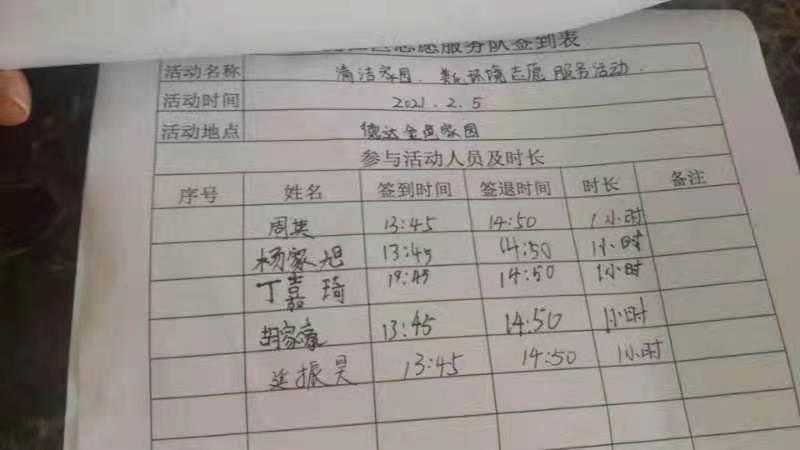 志愿服务队签到表
活动名称 清洁家园、美化环境志愿服务活动.
活动时间 2021.2.5
活动地点 德达金鱼家园
参与活动人员及时长
序号 姓名 签到时间 签退时间 时长 备注
周英 13:45 14:50 1小时
杨家旭 13:45 14:50 1小时
丁嘉琦 13:45 14:50 1小时
胡家豪 13:45 14:50 1小时
振昊 13:45 14:50 1小时